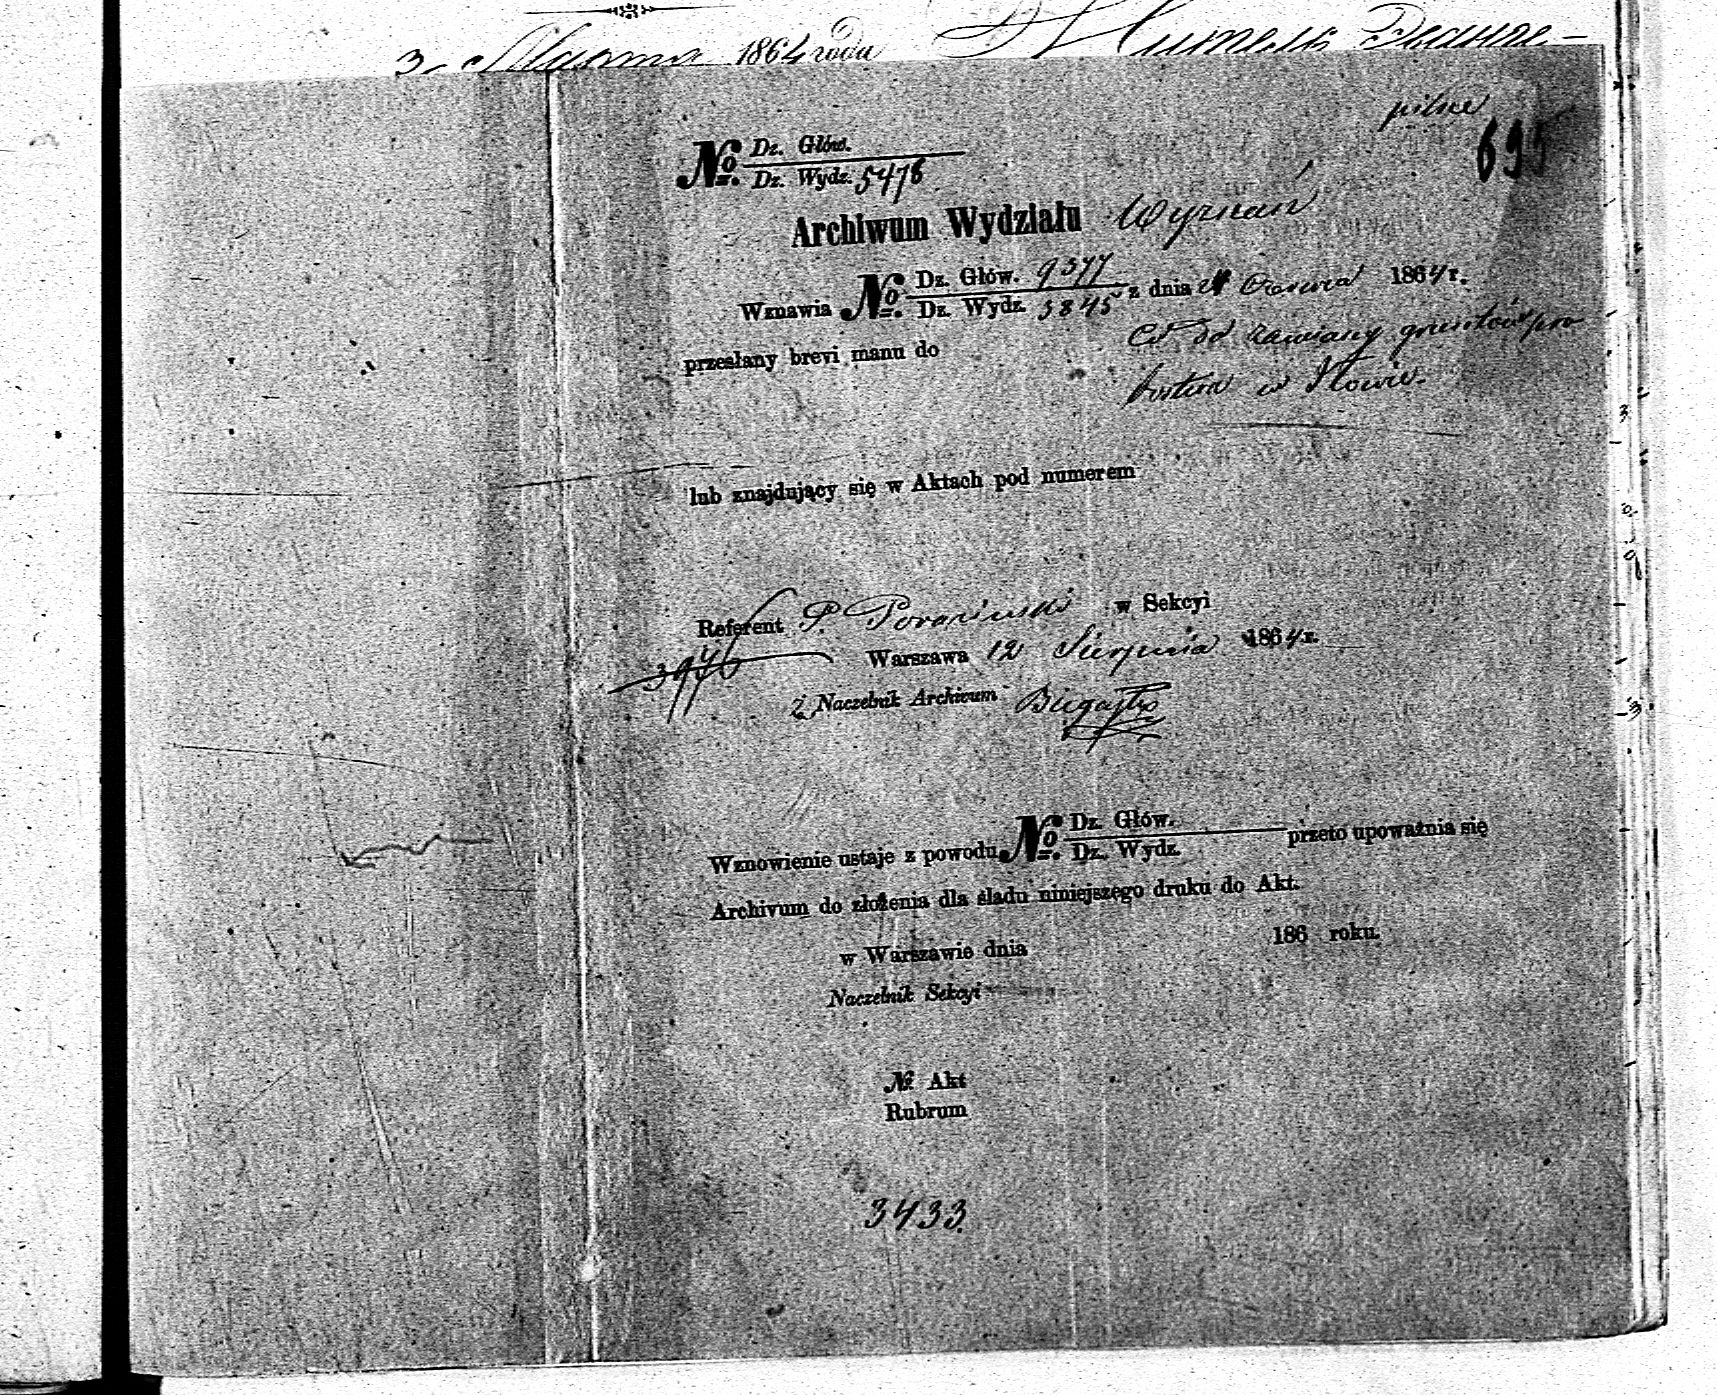 1864 roku
pilne
695
No. Dz. Głów.
Dz. Wydz. 5476
Archiwum Wydziału Wyznań
Wznawia No. Dz. Głów. 9377
Dz. Wydz. 5845 z dnia Czerwca 1864 r.
przesłany brevi manu do
Co do zamiany gruntów pro
bostwa w Iłowie.
lub znajdujący się w Aktach pod numerem
Referent P. w Sekcyi
3976
Warszawa 12 Sierpnia 1864 r.
Z Naczelnik Archivum
Wznowienie ustaje z powodu No. Dz. Głów.
Dz. Wydz. przeto upoważnia się
Archivum do złożenia dla śladu niniejszego druku do Akt.
w Warszawie dnia 186 roku.
Naczelnik Sekcyi
№ Akt
Rubrum
3433.